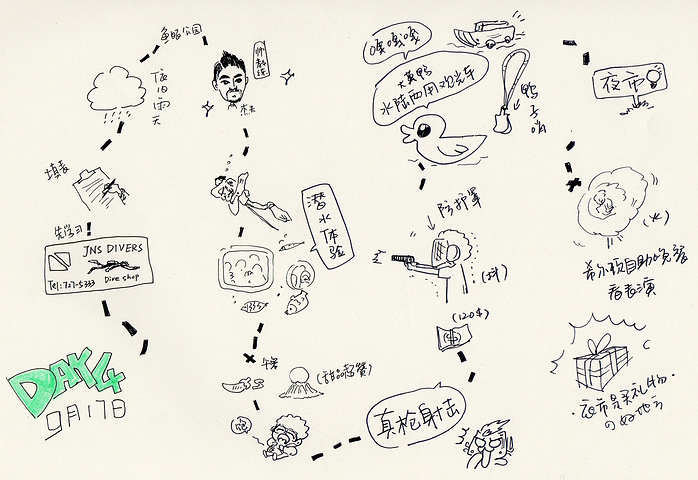 DAY4
9月17日
JNS DIVERS
Dive shop
Tel:727-5333
先学习!
填表
依旧雨天
鱼眼公园
帅教练
杰夫
潜水体验
午餐
(甜品超赞)
真枪射击
(120$)
(抖)
防护罩
大黄鸭
水陆两用观光车
嘎嘎嘎
鸭子哨
夜市
(火)
希尔顿自助晚餐
看表演
·夜市是买礼物·
の好地方